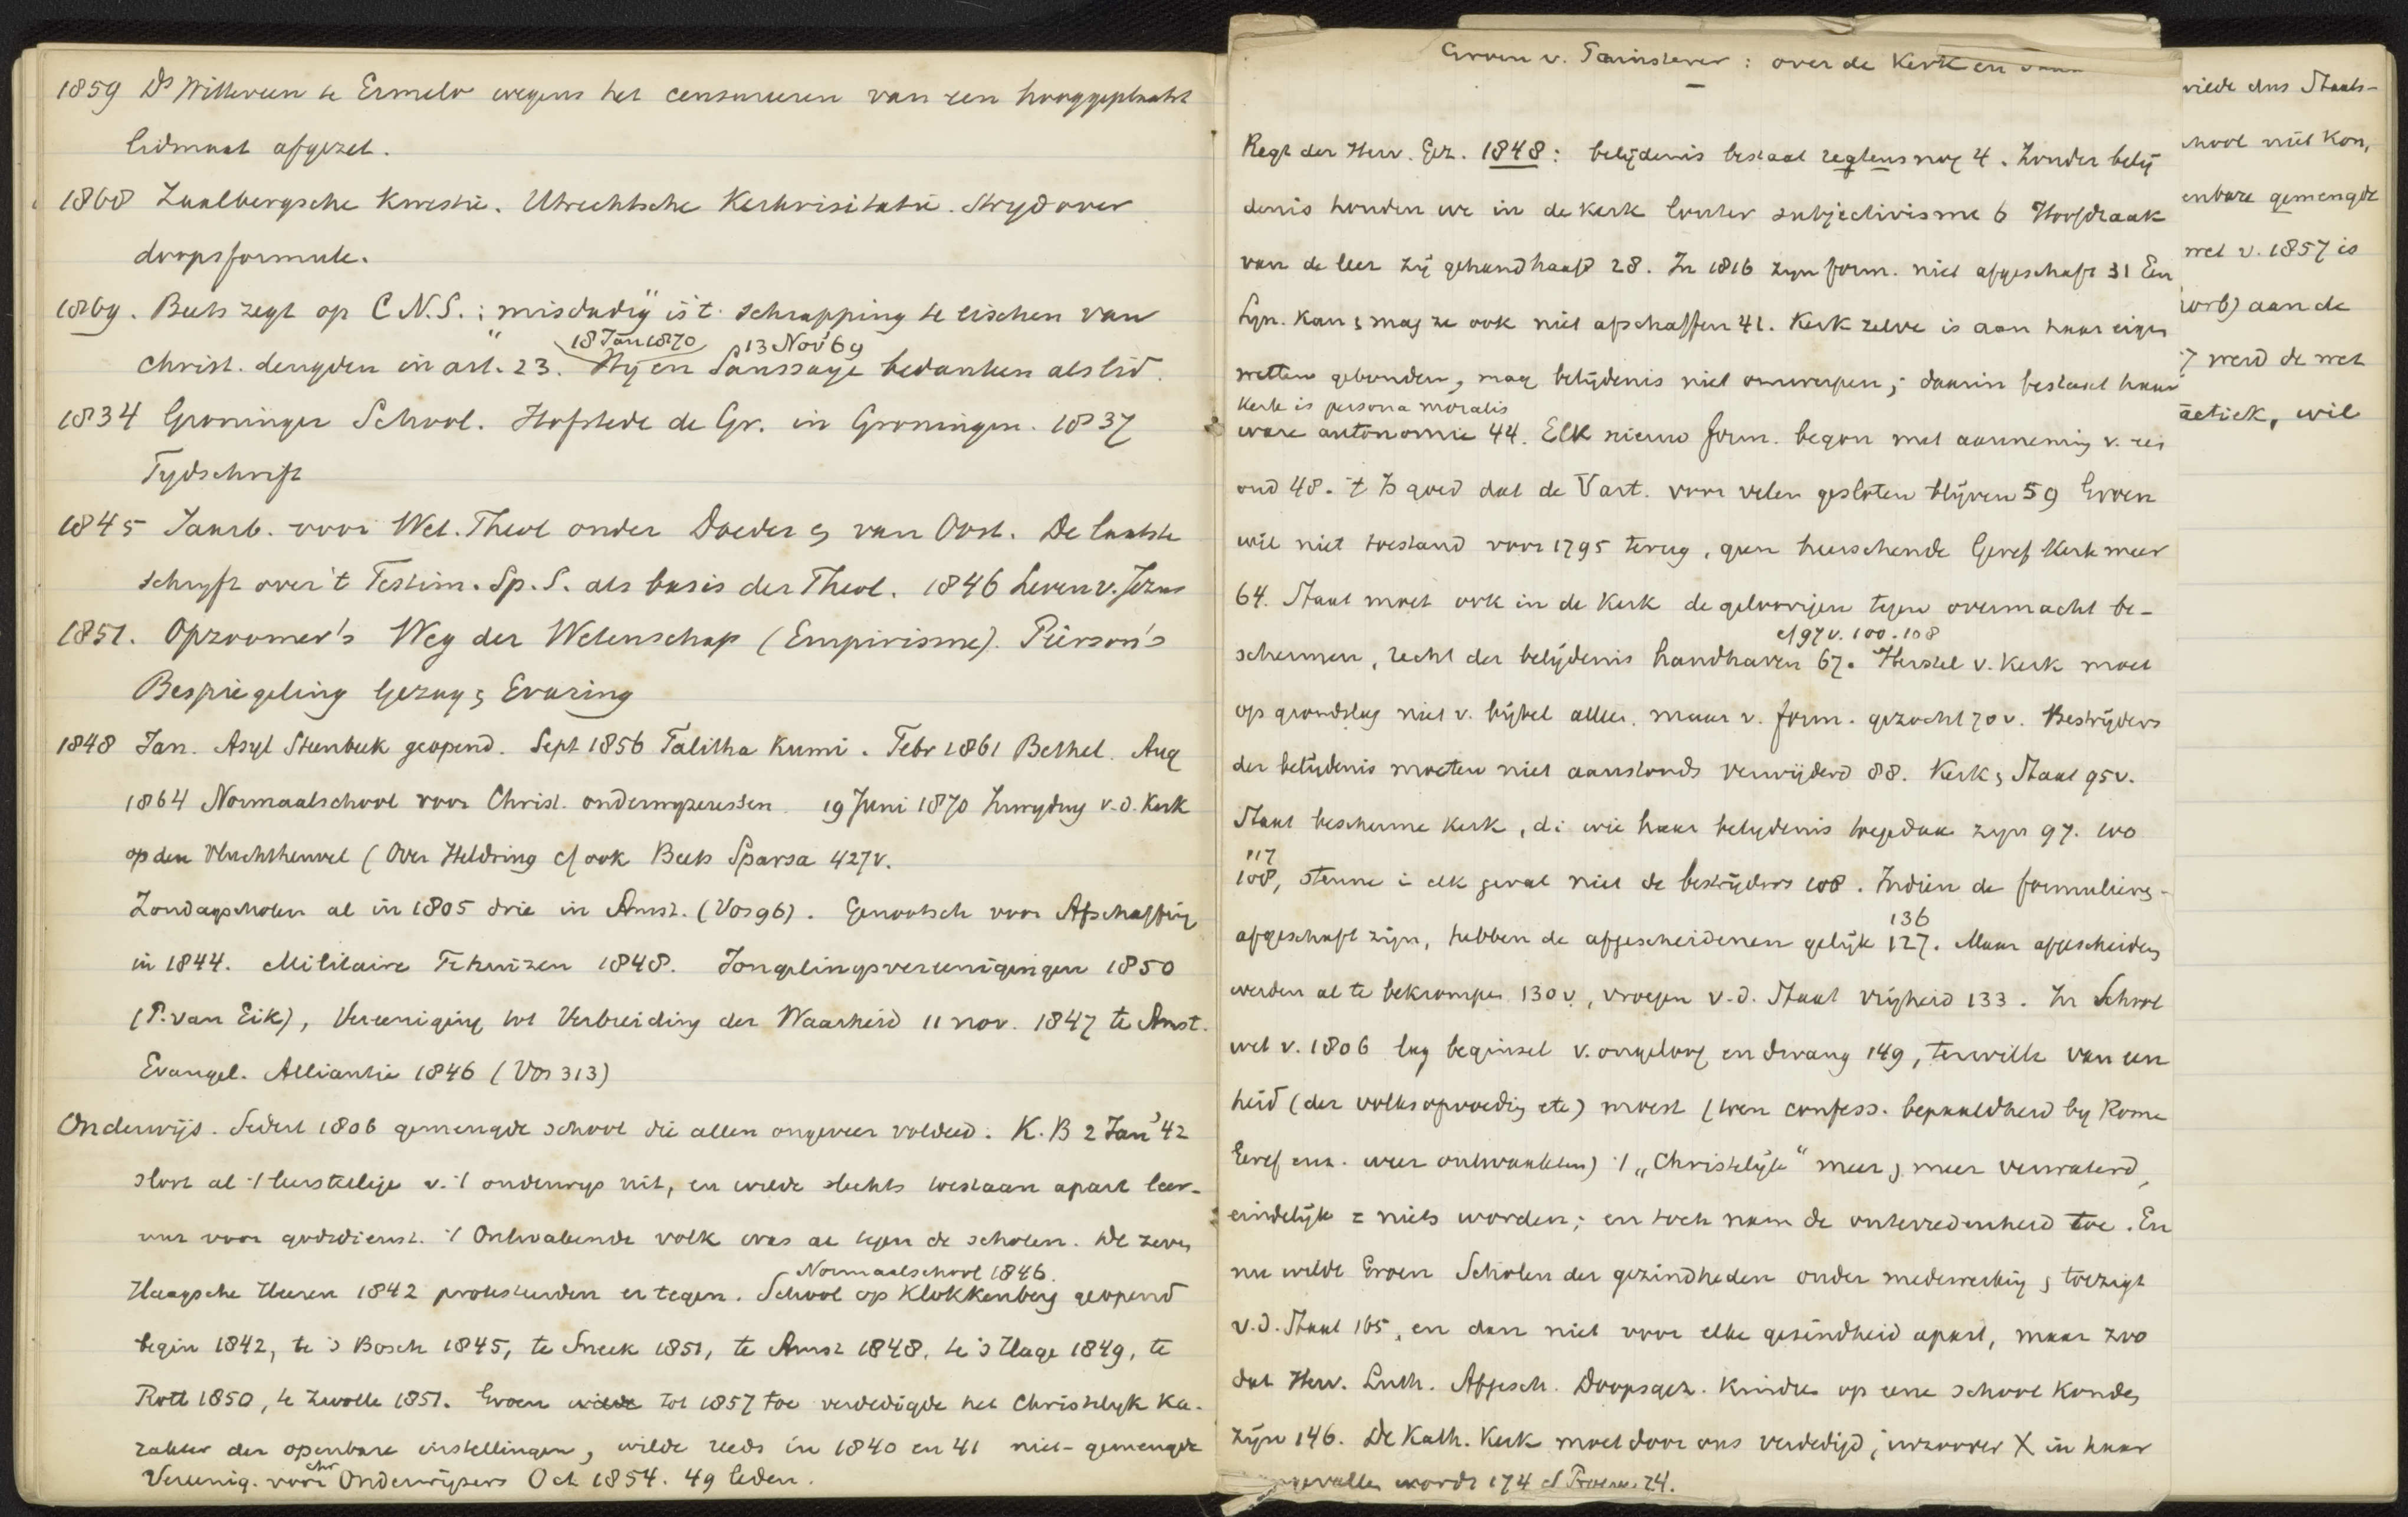 1859 Ds Witteveen te Ermelo wegens het censureeren van een hooggeplaatst
lidmaat afgezet.
1868 Zaalbergsche Kwestie. Utrechtsche Kerkvisitatie. Stryd over
doopsformule.
1869. Beets zegt op C.N.S.: „misdadig" is 't schrapping te eischen van
18 Jan 1870 13 Nov '69
Christ. deugden in art. 23. Hy en Saussaye bedanken als lid.
1834 Groninger School. Hofstede de Gr. in Groningen. 1837
Tydschrift
1845 Jaarb. voor Wet. Theol onder Doedes & van Oost. De laatste
schryft over 't Testim. Sp. S. als basis der Theol. 1846 Leven v. Jezus
1851. Opzoomer's Weg der Wetenschap (Empirisme). Pierson's
Bespiegeling Gezag & Ervaring
1848 Jan. Asyl Steenbeek geopend. Sept 1856 Talitha Kumi. Febr 1861 Bethel. Aug
1864 Normaalschool voor Christ. onderwyzeressen. 19 Juni 1870 Inwyding v.d. Kerk
op den Vluchtheuvel (Over Heldring cf ook Beets Sparsa 427v.
Zondagscholen al in 1805 drie in Amst. (Vos 96). Genootsch voor Afschaffing
in 1844. Militaire Tehuizen 1848. Jongelingsvereenigingen 1850
(P. van Eik), Vereeniging tot Verbreiding der Waarheid 11 nov. 1847 te Amst.
Evangel. Alliantie 1846 (Vos 313)
Onderwijs. Sedert 1806 gemengde school die allen ongeveer voldeed. K.B 2 Jan '42
sloot al 't leerstellige v. 't onderwys uit, en wilde slechts toestaan apart leer-
uur voor godsdienst. 't Ontwakende volk was al tegen de scholen. De zeven
Normaalschool 1846.
Haagsche Heeren 1842 protesteerden er tegen. School op Klokkenberg geopend
begin 1842, te 's Bosch 1845, te Sneek 1851, te Amst 1848, te 's Hage 1849, te
Rott 1850, te Zwolle 1851. Groen wilde tot 1857 toe verdedigde het Christelyk Ka-
rakter der openbare instellingen, wilde reeds in 1840 en 41 niet-gemengde
chr
Vereenig. voor Onderwijzers Oct 1854. 49 leden.
Groen v. Prinsterer: over de Kerk en
Regt der Herv. Gez. 1848: belijdenis bestaat regtens nog 4. Zonder belij
denis houden we in de kerk louter subjectivisme 6 Hoofdzaak
van de leer zij gehandhaafd 28. In 1816 zyn form. niet afgeschaft 31 Een
Syn. kan & mag ze ook niet afschaffen 41. Kerk zelve is aan haar eigen
wetten gebonden, mag belijdenis niet omwerpen; daarin bestaat haar
Kerk is persona moralis
ware autonomie 44. Elk nieuw form. begon met aanneming v. 't
oud 48. 't Is goed dat de Vaderl. voor velen gesloten blijven 59 Groen
wil niet toestand voor 1795 terug, geen heerschende Geref Kerk meer
64. Staat moet ook in de Kerk de geloovigen tegen overmacht be-
cf 97v. 100. 108
schermen, recht der belijdenis handhaven 67. Herstel v. Kerk moet
op grondslag niet v. bijbel alleen, maar v. form. gezocht 70v. Bestrijders
der belijdenis moeten niet aanstonds verwijderd 88. Kerk & Staat 95v.
Staat bescherme kerk, di wie haar belydenis toegedaan zyn 97. 100
117
108, steune i elk geval niet de bestrijders 108. Indien de formulieren
136
afgeschaft zijn, hebben de afgescheidenen gelijk 127. Maar afgescheiden
werden al te bekrompen 130v, vroegen v.d. Staat vrijheid 133. In School
wet v. 1806 lag beginsel v. ongeloof en dwang 149, terwille van een
heid (der volksopvoeding etc) moest (toen confess. bepaaldheid by Rome
Geref enz. weer ontwaakten) 't „Christelijk" meer & meer verwaterd,
eindelijk = niets worden; en toch nam de ontevredenheid toe. En
nu wilde Groen Scholen der gezindheden onder medewerking & toezigt
v.d. Staat 165, en dan niet voor elke gezindheid apart, maar zoo
dat Herv. Luth. Afgesch. Doopsgez. Kinders op eene school konden
zijn 146. De Kath. Kerk moet door ons verdedigd, inzoover X in haar
aangevallen wordt 174 cf Proeve 24.
wilde dus Staats-
school niet kon,
enbare gemengde
wet v. 1857 is
aan de
7 werd de wet
actiek, wil